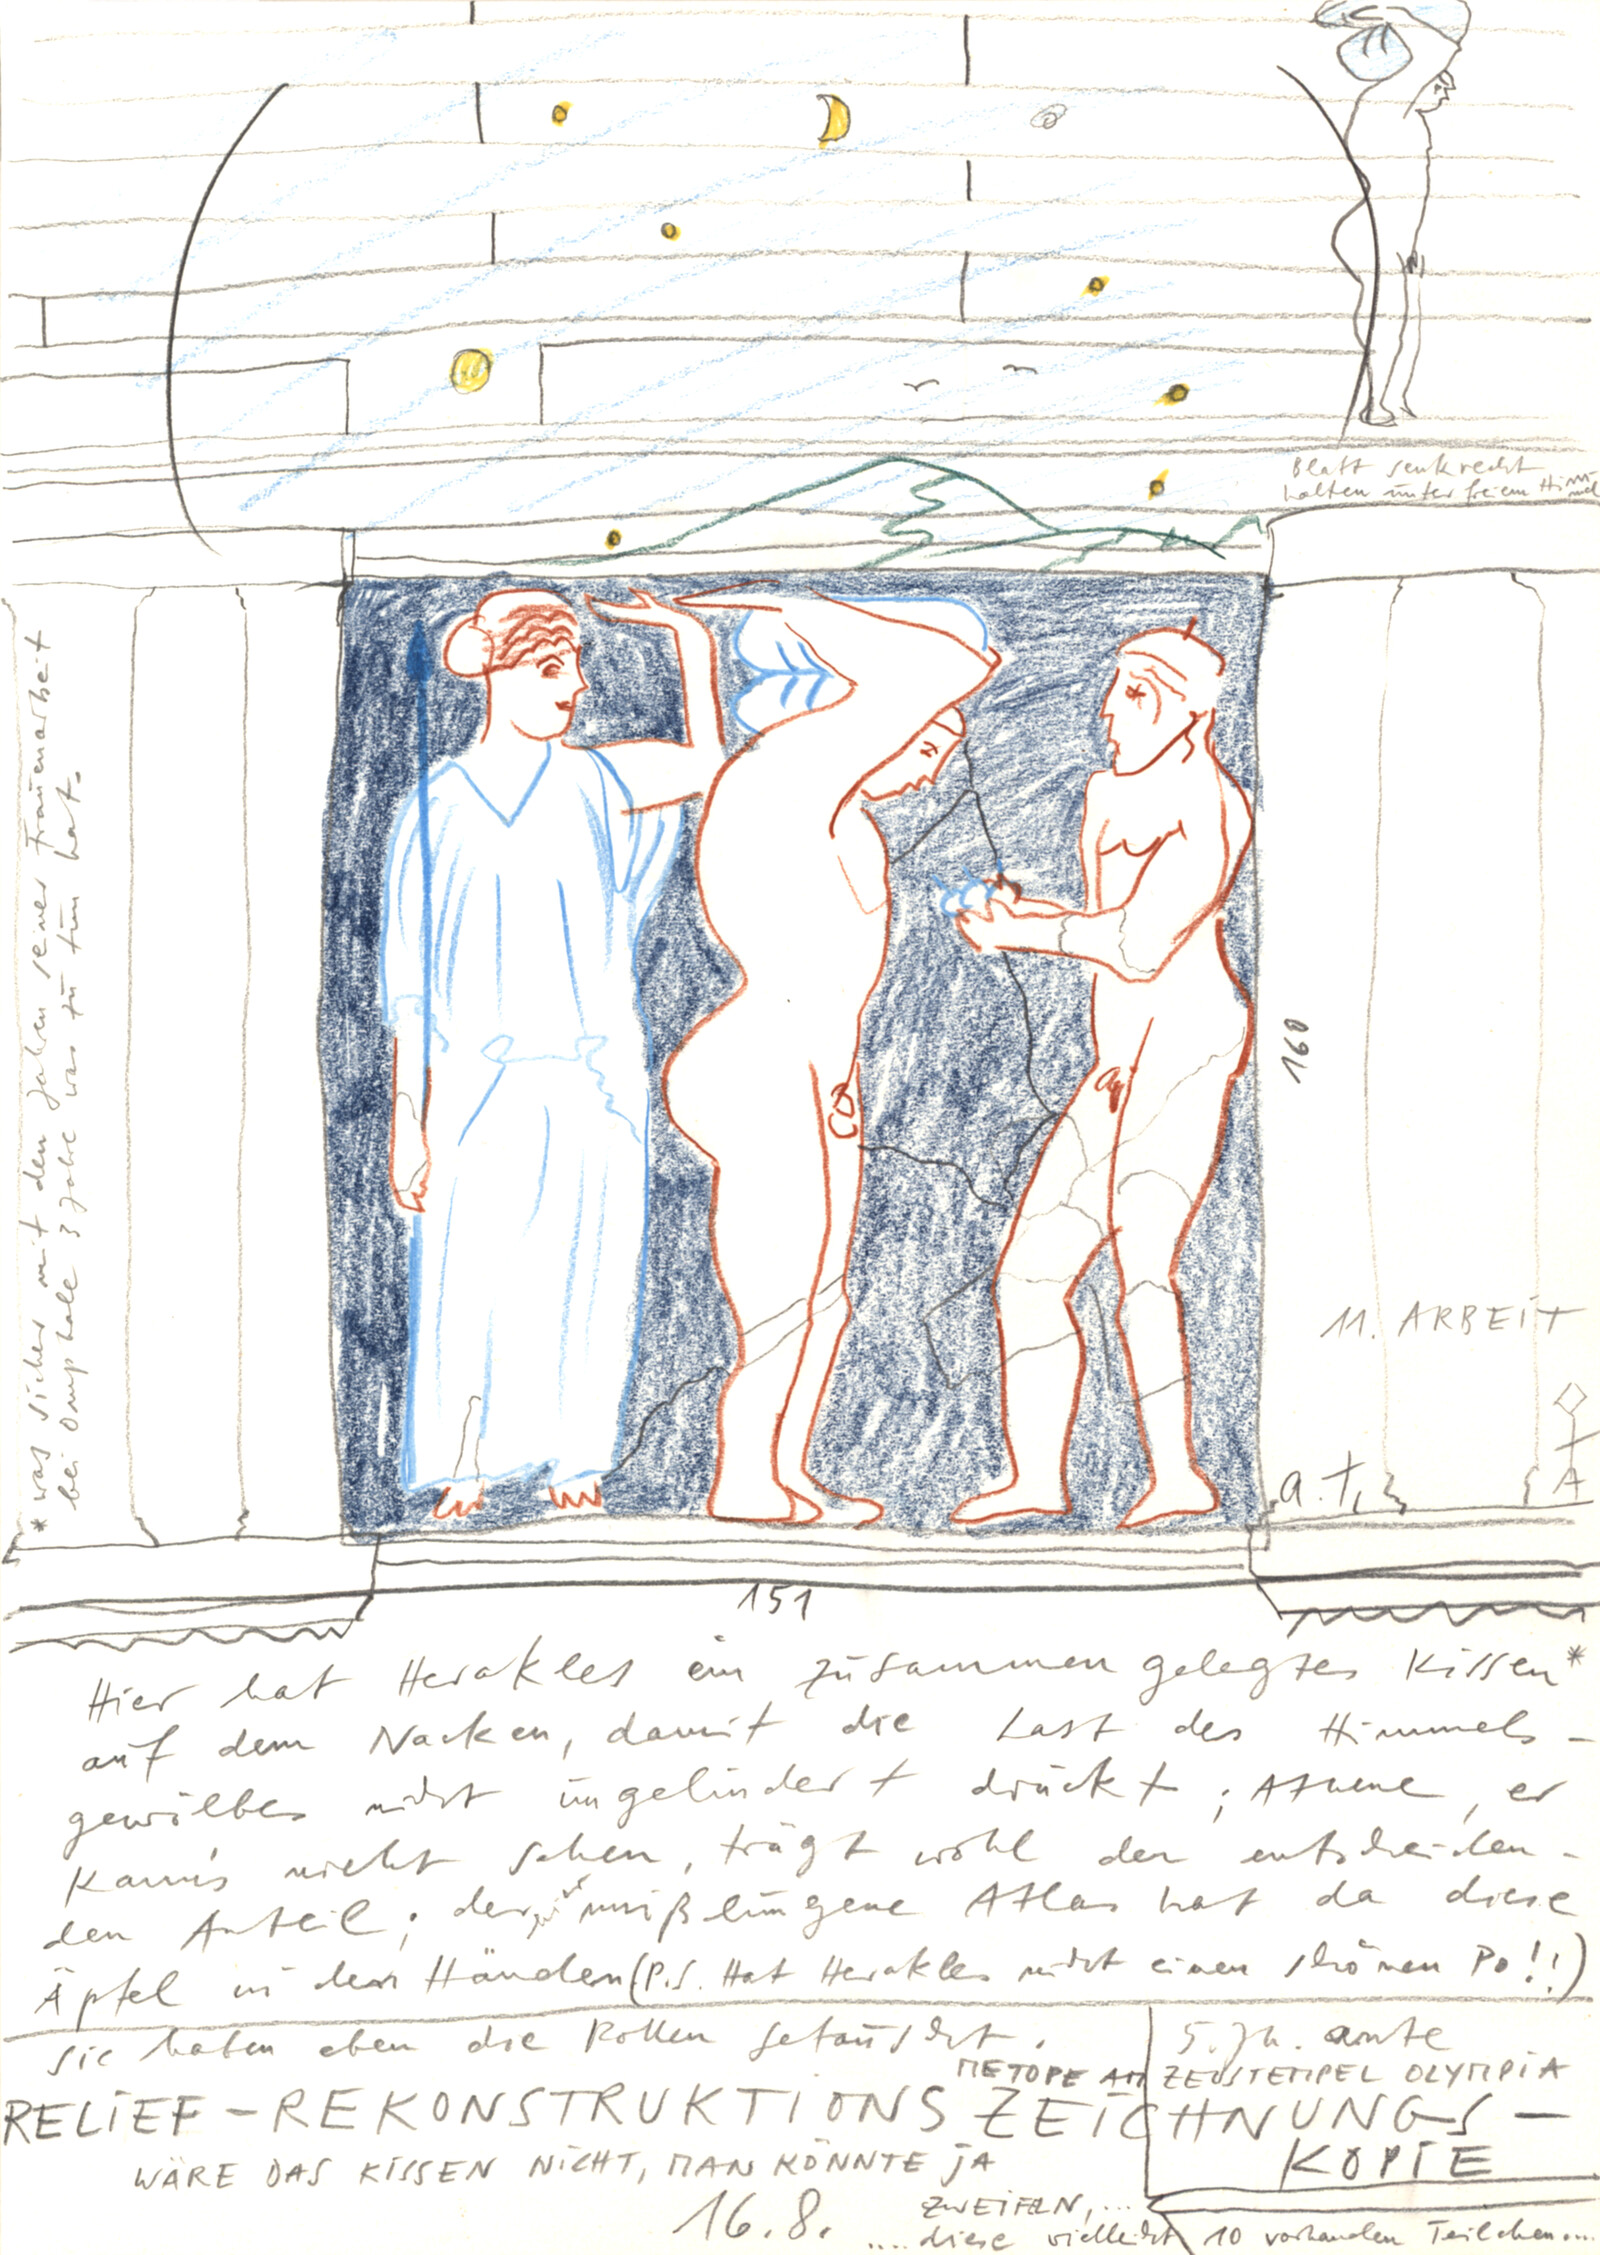 Blatt senkrecht
halten unter freiem Himmel
* was sicher mit den Jahren seiner Frauenarbeit
bei Omphale 3 Jahre was zu tun hat.
160
11. ARBEIT
A
a.t.
151
Hier hat Herakles ein zusammengelegtes Kissen*
auf dem Nacken, damit die Last des Himmels-
gewölbes nicht ungelindert drückt; Athene, er
kann's nicht sehen, trägt wohl den entscheiden-
den Anteil; der mißlungene Atlas hat da diese
Äpfel in den Händen (P.S. Hat Herakles nicht einen schönen Po!!)
sie haben eben die Rollen getauscht.
5. Jh. ante
METOPE AM ZEUSTEMPEL OLYMPIA
RELIEF-REKONSTRUKTIONSZEICHNUNGS-
KOPIE
WÄRE DAS KISSEN NICHT, MAN KÖNNTE JA
ZWEIFELN,...
16.8.
....diese vielleicht 10 vorhanden Teilchen....